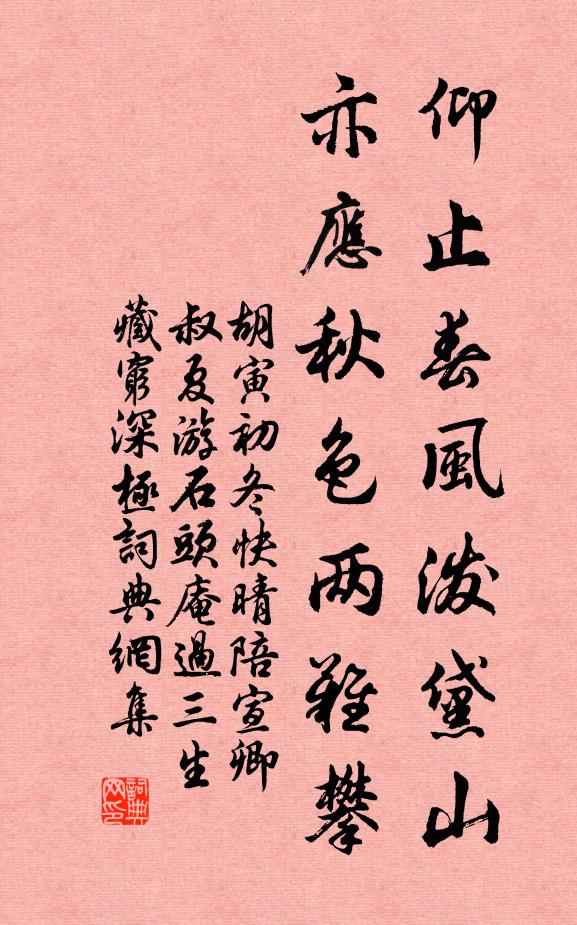 仰止春風潑黛山
亦應秋色两難攀
胡寅初冬快晴陪宣卿
叔夏游石頭庵過三生
藏窮深極詞典網集
詞典网印